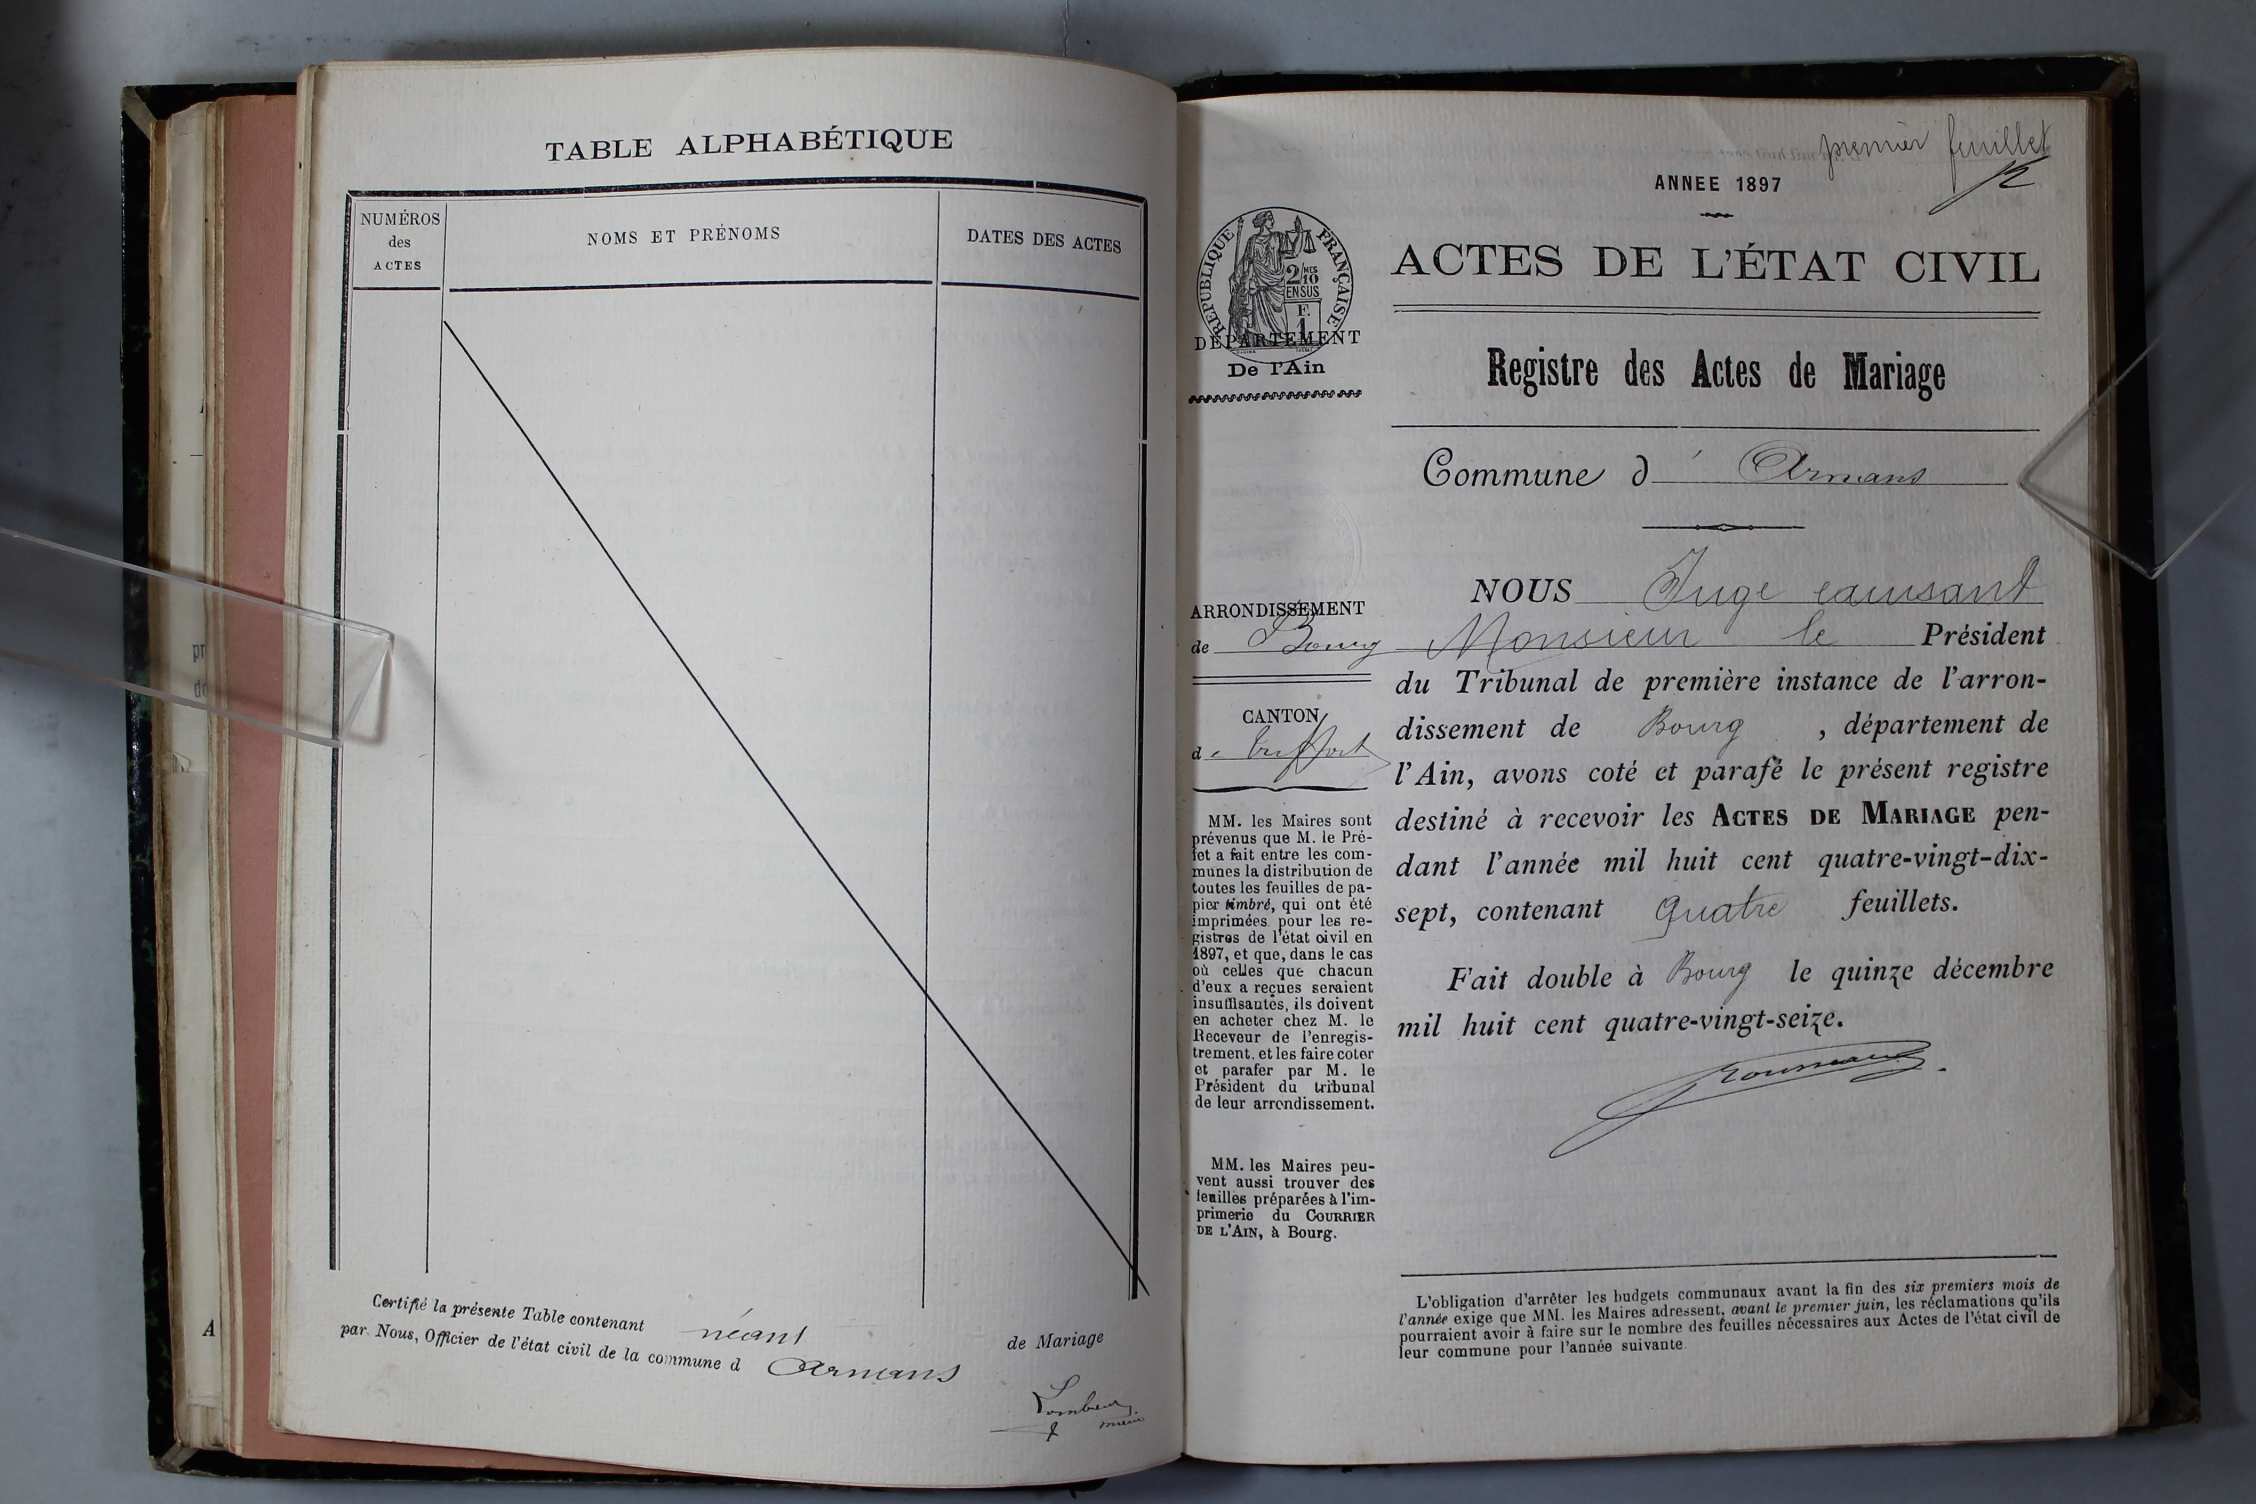 TABLE ALPHABÉTIQUE
NUMÉROS
des
ACTES
NOMS ET PRÉNOMS
DATES DES ACTES
Certifié la présente Table contenant néant de Mariage
par Nous, Officier de l'état civil de la commune d Armans
pr
do
A
premier feuillet
ANNEE 1897
RÉPUBLIQUE FRANÇAISE
2/MES
10
EN SUS
F.
1
DÉPARTEMENT
De l'Ain
ACTES DE L'ÉTAT CIVIL
Registre des Actes de Mariage
Commune d' Armans
ARRONDISSEMENT
de Bourg
CANTON
d
MM. les Maires sont
prévenus que M. le Pré-
fet a fait entre les com-
munes la distribution de
toutes les feuilles de pa-
pier timbré, qui ont été
imprimées pour les re-
gistres de l'état civil en
1897, et que, dans le cas
où celles que chacun
d'eux a reçues seraient
insuffisantes, ils doivent
en acheter chez M. le
Receveur de l'enregis-
trement, et les faire coter
et parafer par M. le
Président du tribunal
de leur arrondissement.
MM. les Maires peu-
vent aussi trouver des
feuilles préparées à l'im-
primerie du COURRIER
DE L'AIN, à Bourg.
NOUS Juge
Monsieur le Président
du Tribunal de première instance de l'arron-
dissement de Bourg, département de
l'Ain, avons coté et parafé le présent registre
destiné à recevoir les ACTES DE MARIAGE pen-
dant l'année mil huit cent quatre-vingt-dix-
sept, contenant quatre feuillets.
Fait double à Bourg le quinze décembre
mil huit cent quatre-vingt-seize.
L'obligation d'arrêter les budgets communaux avant la fin des six premiers mois de
l'année exige que MM. les Maires adressent, avant le premier juin, les réclamations qu'ils
pourraient avoir à faire sur le nombre des feuilles nécessaires aux Actes de l'état civil de
leur commune pour l'année suivante